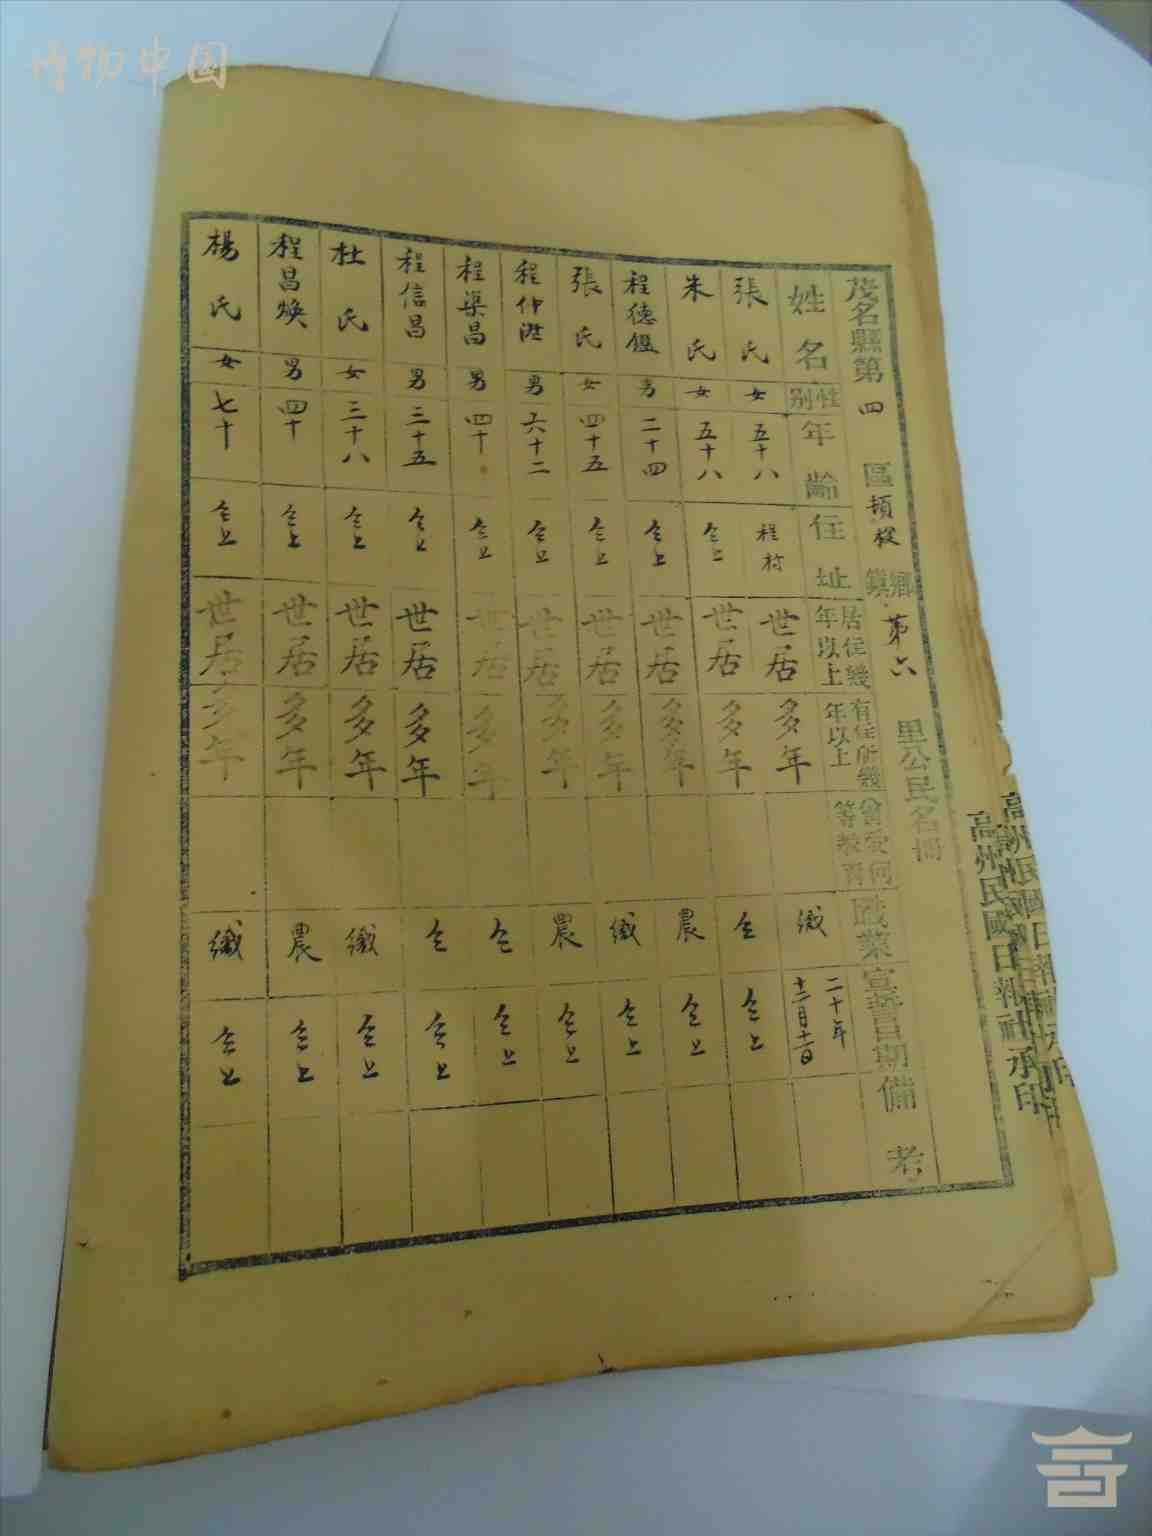 博物中国
茂名縣第四區頓梭鄉鎮第六里公民名冊
姓名 性别 年齡 住址 居住幾年以上 有住所幾年以上 曾受何等敎育 職業 宣誓日期 備考
張氏 女 五十八 世居 多年 織 二十年十二月十二日
朱氏 女 五十八 仝上 世居 多年 仝 仝上
程德鑑 男 二十四 仝上 世居 多年 農 仝上
張氏 女 四十五 仝上 世居 多年 織 仝上
程仲 男 六十二 仝上 世居 多年 農 仝上
程渠昌 男 四十 仝上 世居 多年 仝 仝上
程信昌 男 三十五 仝上 世居 多年 仝 仝上
杜氏 女 三十八 仝上 世居 多年 織 仝上
程昌煥 男 四十 仝上 世居 多年 農 仝上
楊氏 女 七十 仝上 世居 多年 織 仝上
高州民國日報社承印